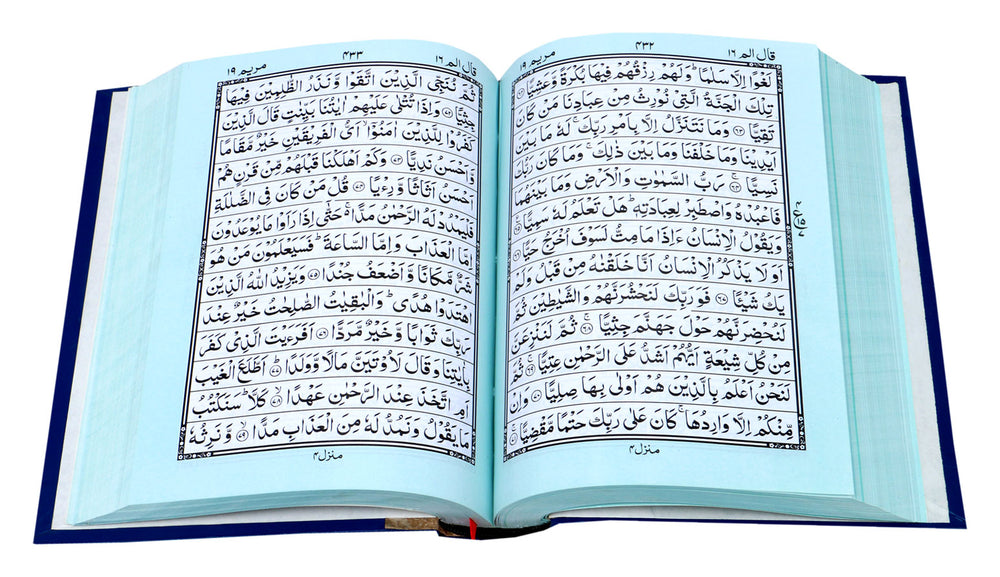 قال الم ١٦
٤٣٢
مريم ١٩
لَغْوًا اِلَّا سَلٰمًا ؕ وَلَهُمْ رِزْقُهُمْ فِيْهَا بُكْرَةً وَّعَشِيًّا ﴿۶۲﴾
تِلْكَ الْجَنَّةُ الَّتِيْ نُوْرِثُ مِنْ عِبَادِنَا مَنْ كَانَ
تَقِيًّا ﴿۶۳﴾ وَمَا نَتَنَزَّلُ اِلَّا بِاَمْرِ رَبِّكَ ۚ لَهٗ مَا بَيْنَ
اَيْدِيْنَا وَمَا خَلْفَنَا وَمَا بَيْنَ ذٰلِكَ ۚ وَمَا كَانَ رَبُّكَ
نَسِيًّا ﴿۶۴﴾ رَبُّ السَّمٰوٰتِ وَالْاَرْضِ وَمَا بَيْنَهُمَا
فَاعْبُدْهُ وَاصْطَبِرْ لِعِبَادَتِهٖ ؕ هَلْ تَعْلَمُ لَهٗ سَمِيًّا ﴿۶۵﴾
وَيَقُوْلُ الْاِنْسَانُ ءَاِذَا مَا مِتُّ لَسَوْفَ اُخْرَجُ حَيًّا ﴿۶۶﴾
اَوَلَا يَذْكُرُ الْاِنْسَانُ اَنَّا خَلَقْنٰهُ مِنْ قَبْلُ وَلَمْ
يَكُ شَيْئًا ﴿۶۷﴾ فَوَرَبِّكَ لَنَحْشُرَنَّهُمْ وَالشَّيٰطِيْنَ ثُمَّ
لَنُحْضِرَنَّهُمْ حَوْلَ جَهَنَّمَ جِثِيًّا ﴿۶۸﴾ ثُمَّ لَنَنْزِعَنَّ
مِنْ كُلِّ شِيْعَةٍ اَيُّهُمْ اَشَدُّ عَلَى الرَّحْمٰنِ عِتِيًّا ﴿۶۹﴾ ثُمَّ
لَنَحْنُ اَعْلَمُ بِالَّذِيْنَ هُمْ اَوْلٰى بِهَا صِلِيًّا ﴿۷۰﴾ وَاِنْ
مِّنْكُمْ اِلَّا وَارِدُهَا ۚ كَانَ عَلٰى رَبِّكَ حَتْمًا مَّقْضِيًّا ﴿۷۱﴾
منزل ٤
قال الم ١٦
٤٣٣
مريم ١٩
ثُمَّ نُنَجِّي الَّذِيْنَ اتَّقَوْا وَّنَذَرُ الظّٰلِمِيْنَ فِيْهَا
جِثِيًّا ﴿۷۲﴾ وَاِذَا تُتْلٰى عَلَيْهِمْ اٰيٰتُنَا بَيِّنٰتٍ قَالَ الَّذِيْنَ
كَفَرُوْا لِلَّذِيْنَ اٰمَنُوْۤا ۙ اَيُّ الْفَرِيْقَيْنِ خَيْرٌ مَّقَامًا
وَّاَحْسَنُ نَدِيًّا ﴿۷۳﴾ وَكَمْ اَهْلَكْنَا قَبْلَهُمْ مِّنْ قَرْنٍ هُمْ
اَحْسَنُ اَثَاثًا وَّرِءْيًا ﴿۷۴﴾ قُلْ مَنْ كَانَ فِي الضَّلٰلَةِ
فَلْيَمْدُدْ لَهُ الرَّحْمٰنُ مَدًّا ۚ حَتّٰۤى اِذَا رَاَوْا مَا يُوْعَدُوْنَ
اِمَّا الْعَذَابَ وَاِمَّا السَّاعَةَ ؕ فَسَيَعْلَمُوْنَ مَنْ هُوَ
شَرٌّ مَّكَانًا وَّاَضْعَفُ جُنْدًا ﴿۷۵﴾ وَيَزِيْدُ اللّٰهُ الَّذِيْنَ
اهْتَدَوْا هُدًى ؕ وَالْبٰقِيٰتُ الصّٰلِحٰتُ خَيْرٌ عِنْدَ
رَبِّكَ ثَوَابًا وَّخَيْرٌ مَّرَدًّا ﴿۷۶﴾ اَفَرَءَيْتَ الَّذِيْ كَفَرَ
بِاٰيٰتِنَا وَقَالَ لَاُوْتَيَنَّ مَالًا وَّوَلَدًا ﴿۷۷﴾ اَطَّلَعَ الْغَيْبَ
اَمِ اتَّخَذَ عِنْدَ الرَّحْمٰنِ عَهْدًا ﴿۷۸﴾ كَلَّا ؕ سَنَكْتُبُ
مَا يَقُوْلُ وَنَمُدُّ لَهٗ مِنَ الْعَذَابِ مَدًّا ﴿۷۹﴾ وَّنَرِثُهٗ
منزل ٤